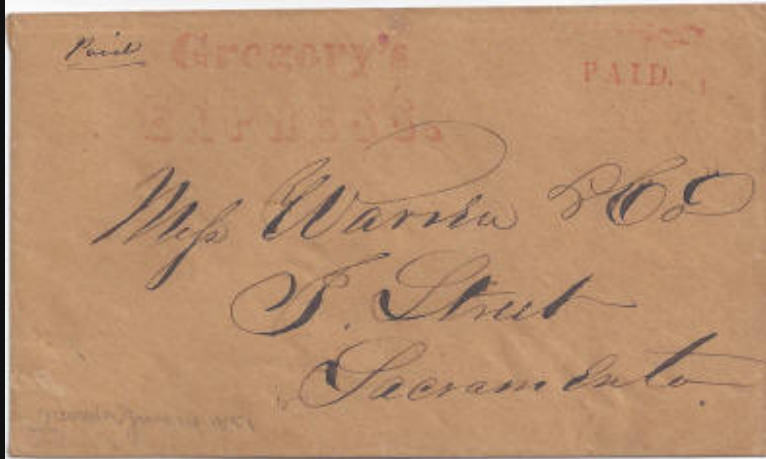 Paid
Gregory's
PAID.
EXPRESS.
Mess Warren & Co
J. Street
Sacramento